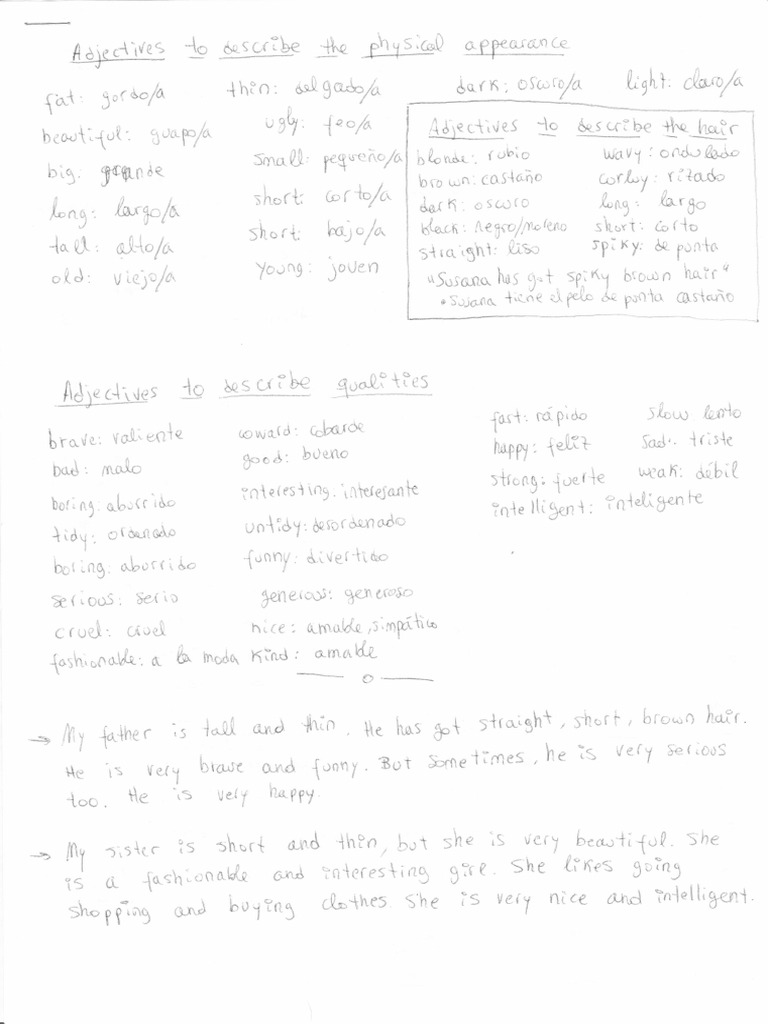 Adjectives to describe the physical appearance
fat: gordo/a thin: delgado/a dark: oscuro/a light: claro/a
beautiful: guapo/a ugly: feo/a
big: grande small: pequeño/a
long: largo/a short: corto/a
tall: alto/a short: bajo/a
old: viejo/a young: joven
Adjectives to describe the hair
blonde: rubio wavy: ondulado
brown: castaño corlwy: rizado
dark: oscuro long: largo
black: negro/moreno short: corto
straight: liso spiky: de punta
"Susana has got spiky brown hair"
• Susana tiene el pelo de punta castaño
Adjectives to describe qualities
brave: valiente coward: cobarde fast: rápido slow lento
bad: malo good: bueno happy: feliz sad: triste
boring: aburrido interesting: interesante strong: fuerte weak: débil
tidy: ordenado untidy: desordenado intelligent: inteligente
boring: aburrido funny: divertido
serious: serio generous: generoso
cruel: cruel nice: amable, simpático
fashionable: a la moda kind: amable
→ My father is tall and thin. He has got straight, short, brown hair.
He is very brave and funny. But sometimes, he is very serious
too. He is very happy.
→ My sister is short and thin, but she is very beautiful. She
is a fashionable and interesting girl. She likes going
shopping and buying clothes. She is very nice and intelligent.